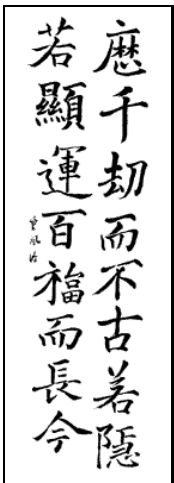 歷千劫而不古若隱
若顯運百福而長今